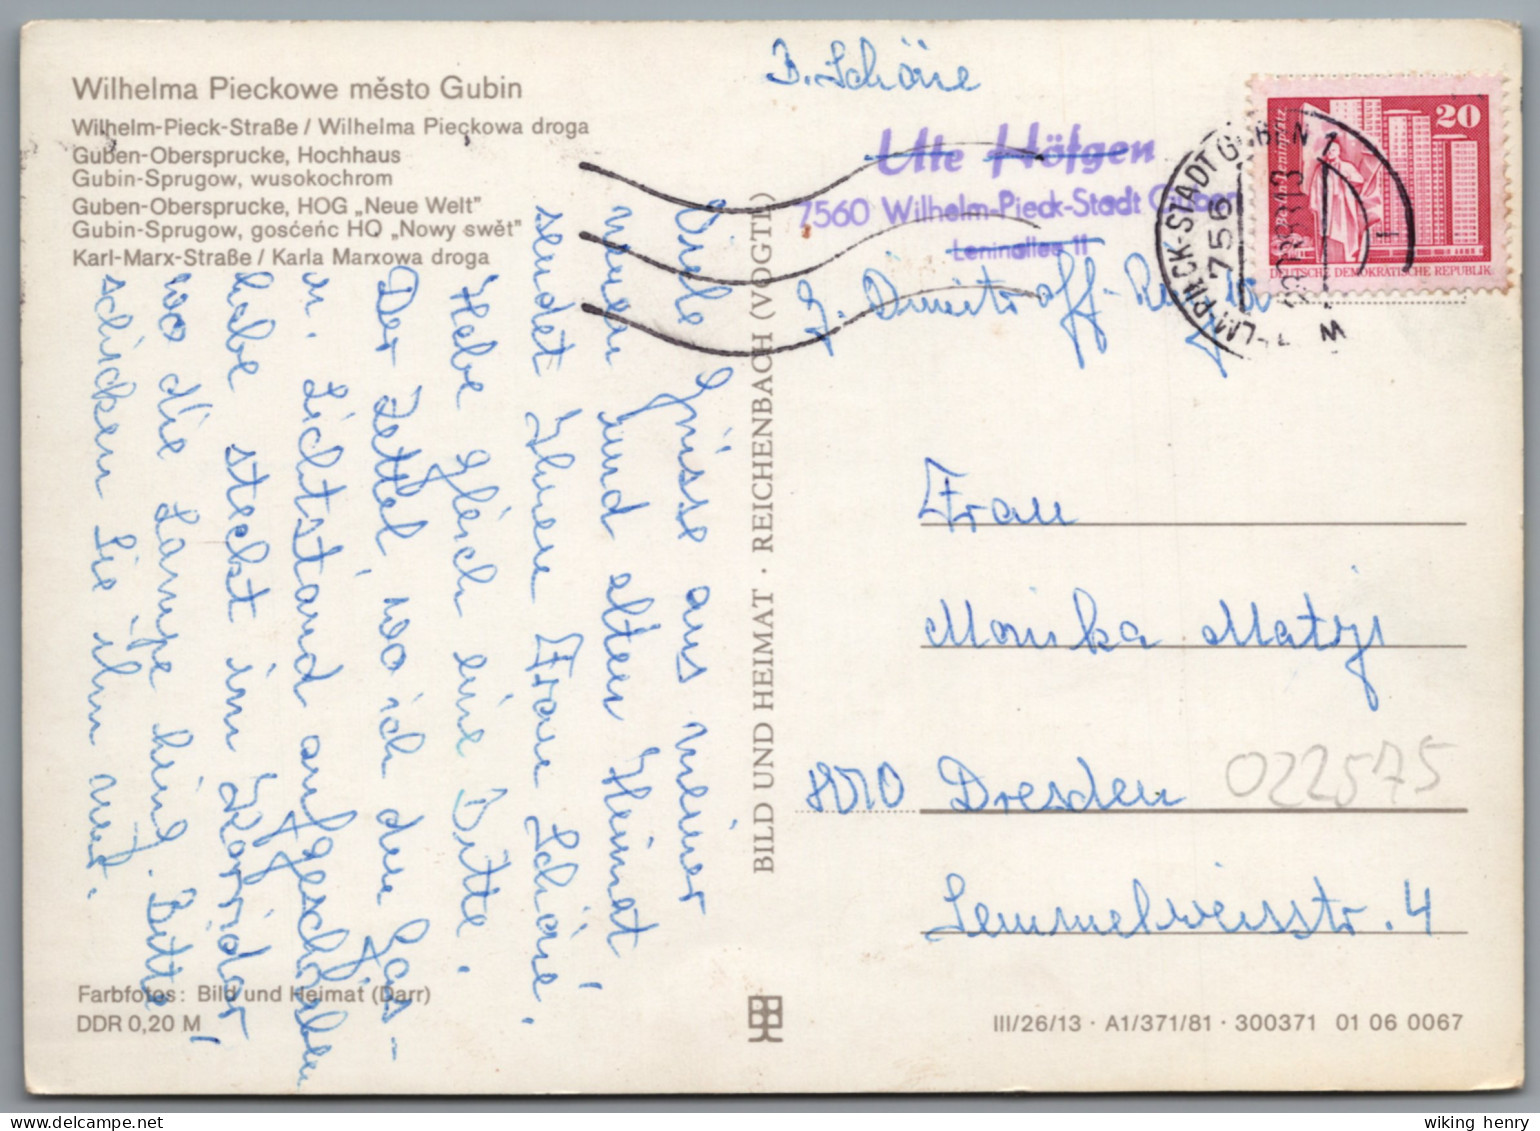 Wilhelma Pieckowe město Gubin
Wilhelm-Pieck-Straße / Wilhelma Pieckowa droga
Guben-Obersprucke, Hochhaus
Gubin-Sprugow, wusokochrom
Guben-Obersprucke, HOG „Neue Welt"
Gubin-Sprugow, gosćeńc HO „Nowy swět"
Karl-Marx-Straße / Karla Marxowa droga
Viele Grüsse aus meiner
neuen und alten Heimat
sendet Ihnen Frau Schöne.
Hebe gleich eine Bitte.
Der Zettel, wo ich den Gas-
u. Lichtstand aufgeschrieben
habe steckt im Korridor,
wo die Lampe hing. Bitte
schicken Sie ihn mit.
Farbfotos: Bild und Heimat (Darr)
DDR 0,20 M
BILD UND HEIMAT · REICHENBACH (VOGTL)
B. Schöne
Ute Höfgen
7560 Wilhelm-Pieck-Stadt Guben
Leninallee 11
G. Dimitroff-Ring
20
DEUTSCHE DEMOKRATISCHE REPUBLIK
WILHELM-PIECK-STADT GUBEN 1
756
Frau
Monika Matzi
8010 Dresden
022575
Semmelweisstr. 4
III/26/13 · A1/371/81 · 300371 01 06 0067
wiking henry